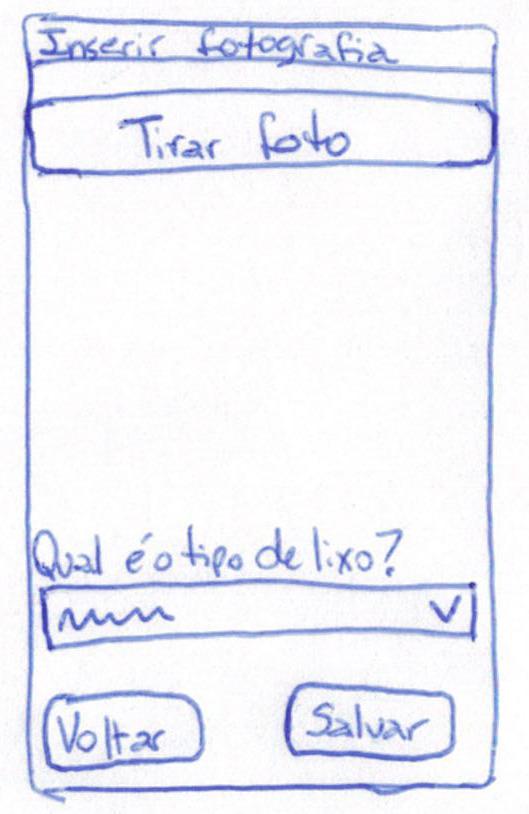 Inserir fotografia
Tirar foto
Qual é o tipo de lixo?
Voltar
Salvar